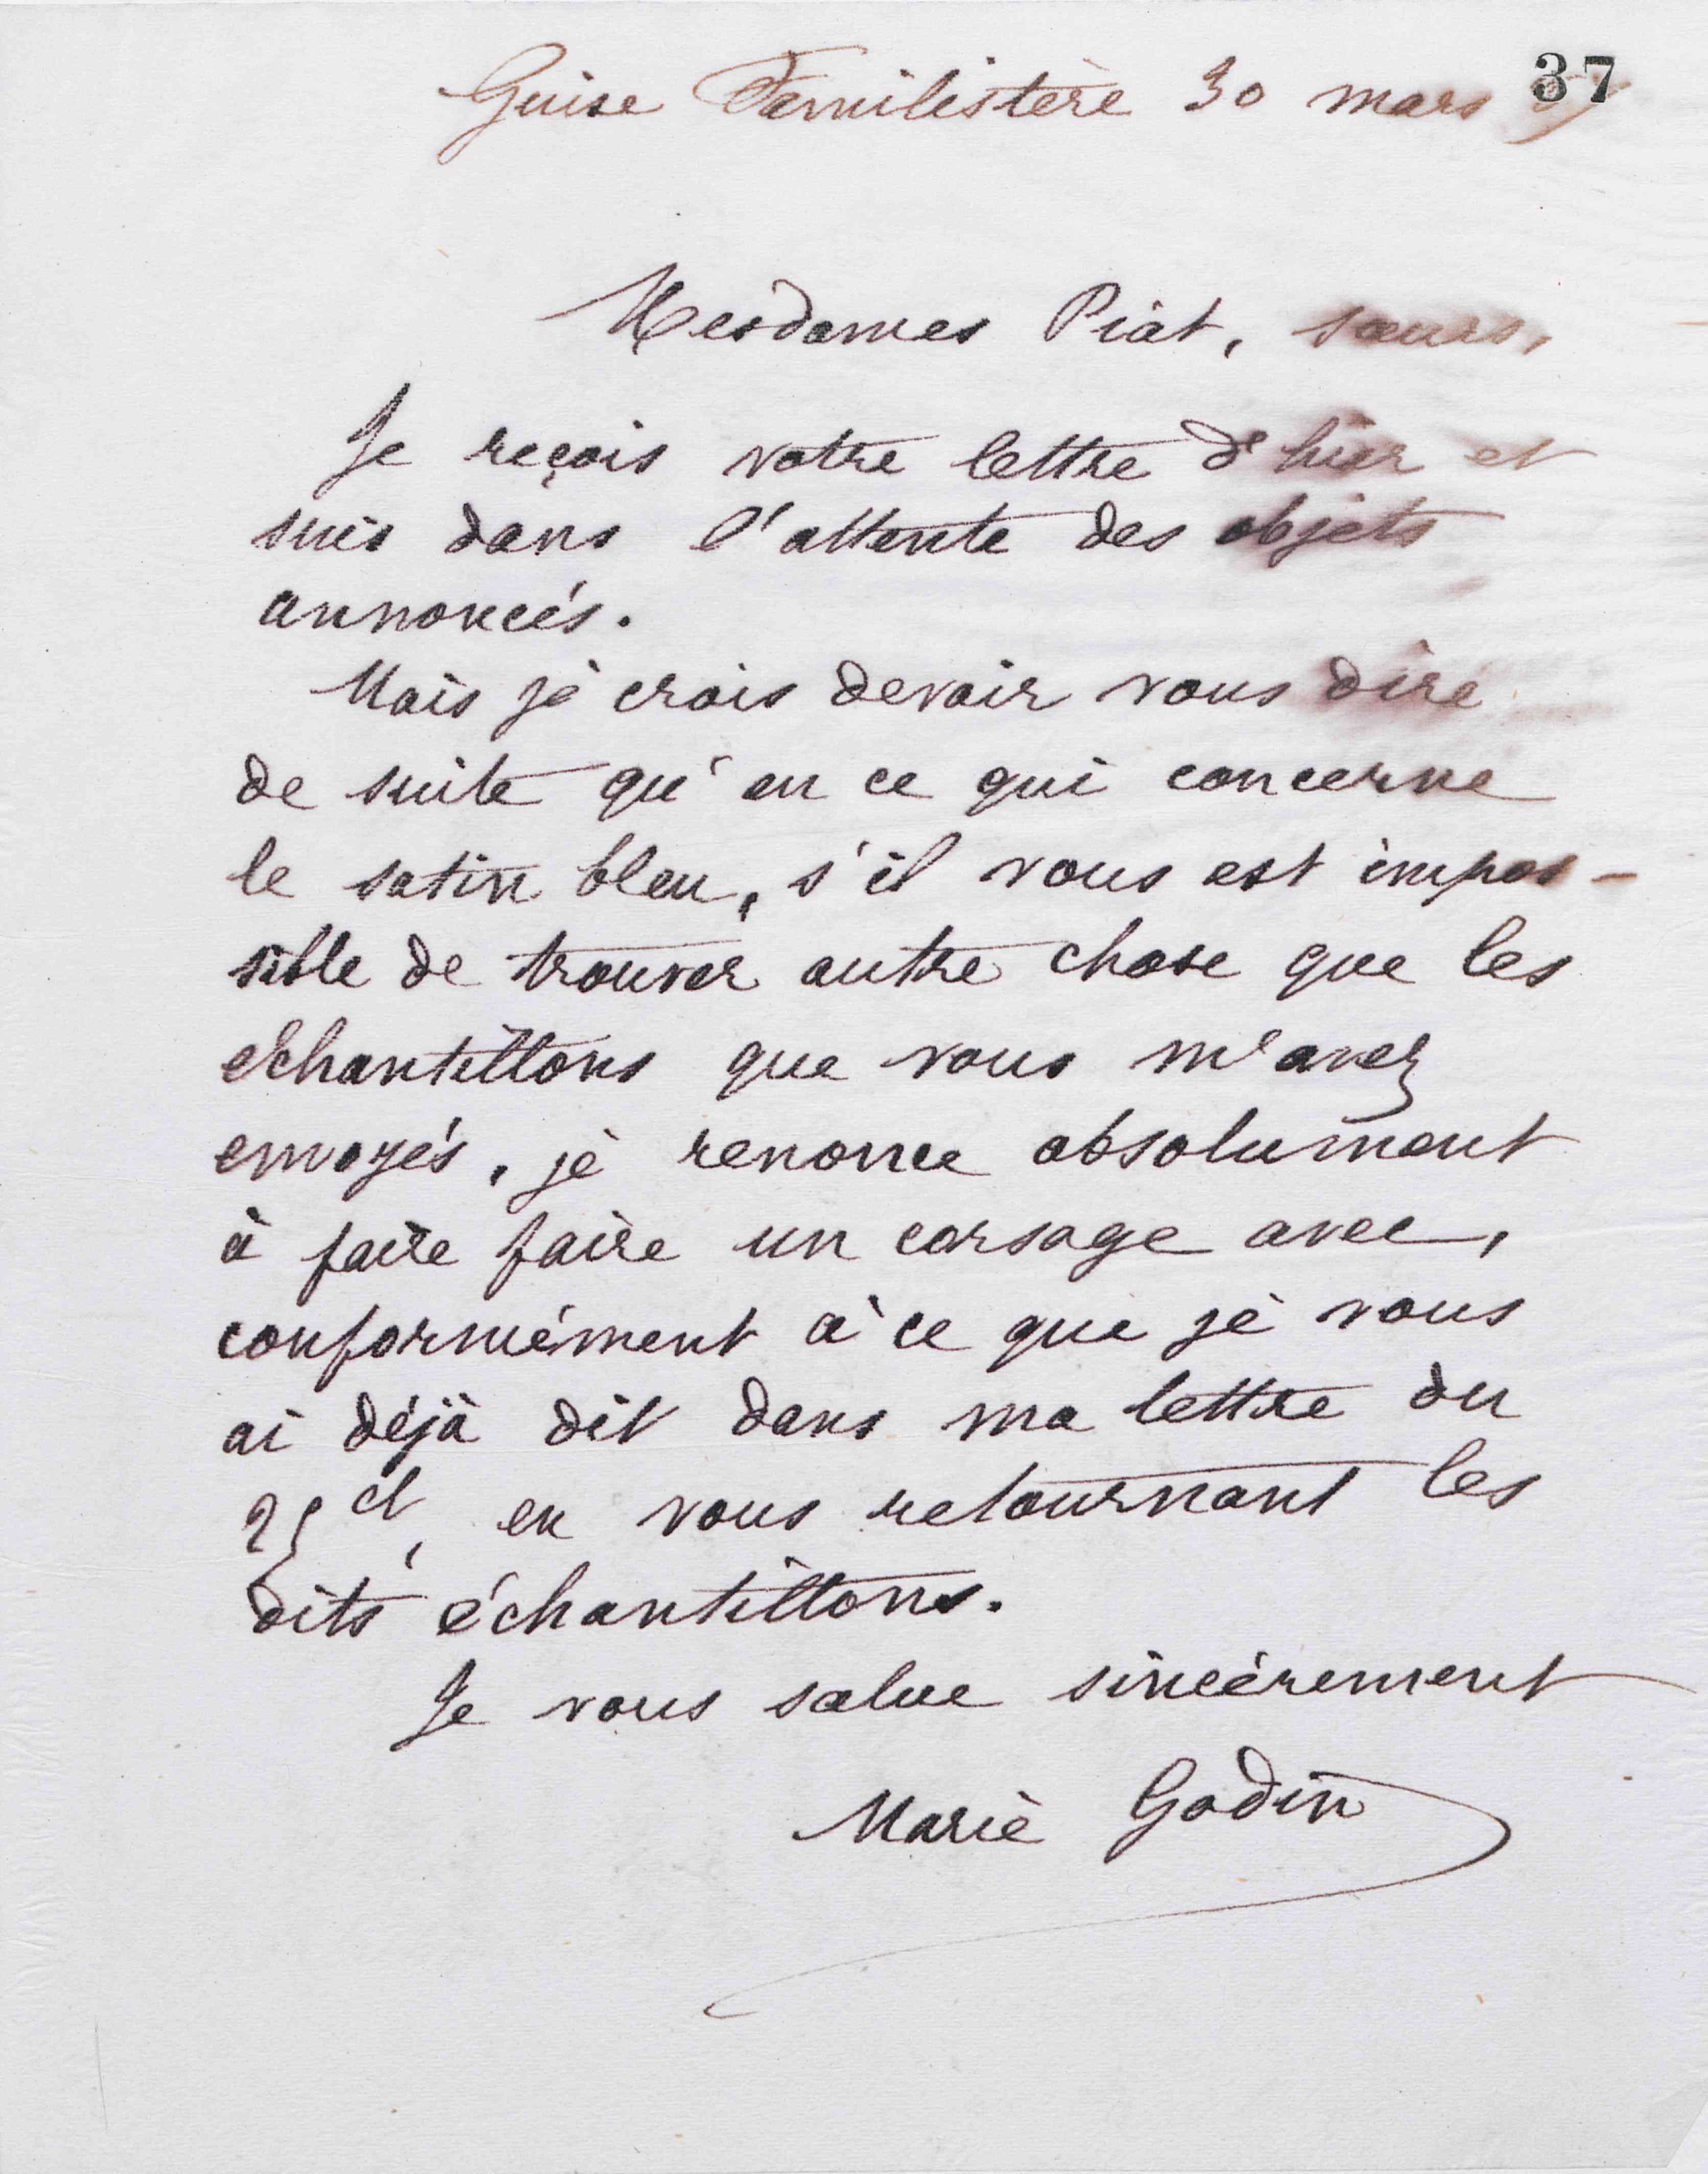 Guise Familistère 30 mars
37
Mesdames Piat, sœurs,
Je reçois votre lettre d'hier et
suis dans l'attente des objets
annoncés.
Mais je crois devoir vous dire
de suite qu'en ce qui concerne
le satin bleu, s'il vous est impos-
sible de trouver autre chose que les
échantillons que vous m'avez
envoyés, je renonce absolument
à faire faire un corsage avec,
conformément à ce que je vous
ai déjà dit dans ma lettre du
25 ct, en vous retournant les
dits échantillons.
Je vous salue sincèrement
Marie Godin